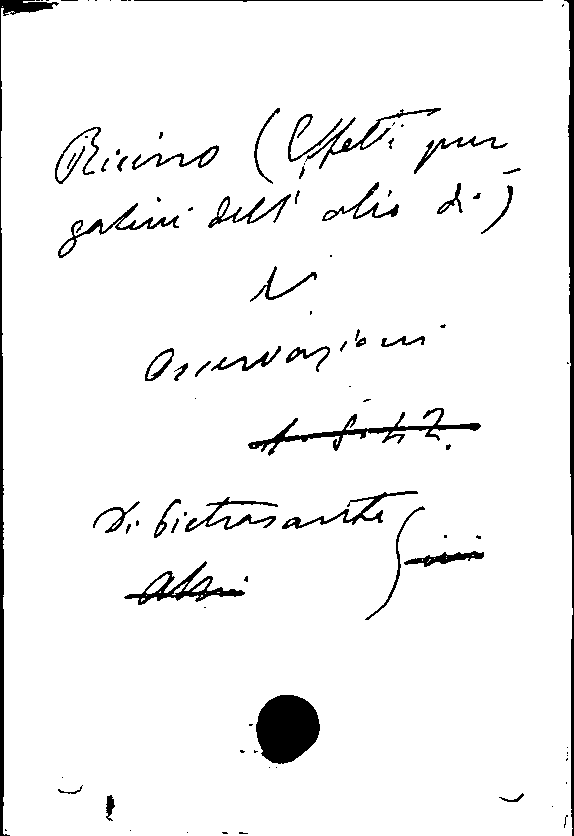 Ricino (Effetti pur
gativi dell' olio di)
V
Osservazioni
Di Pietrasanta